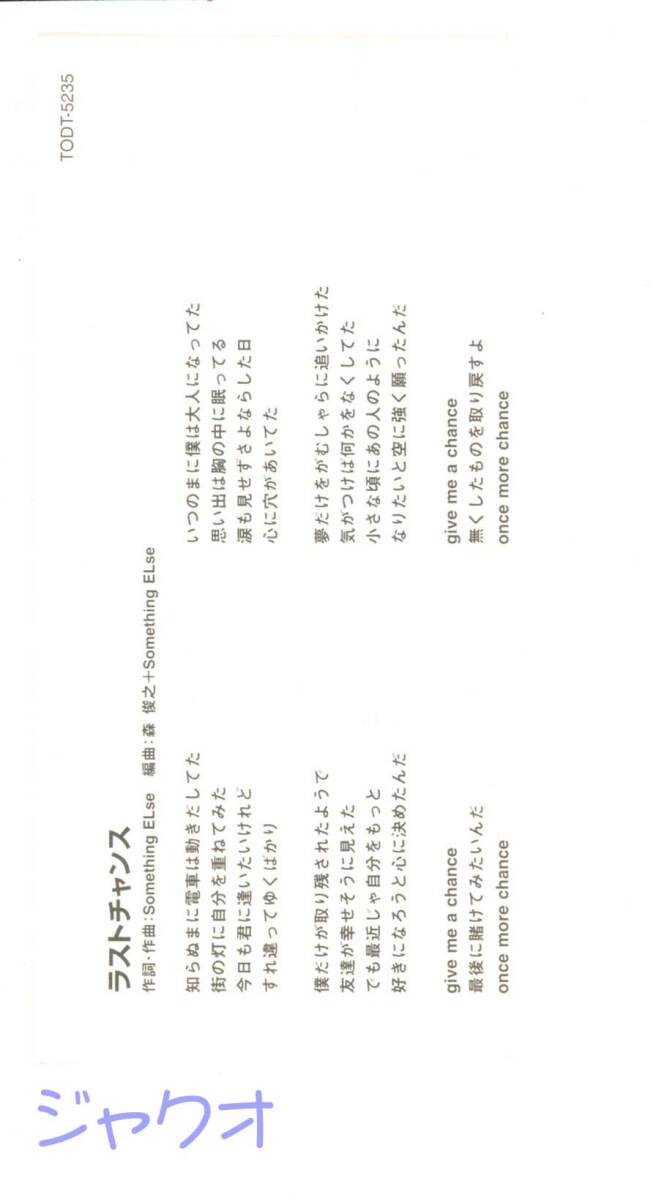 TODT-5235
ラストチャンス
作詞・作曲:Something ELse 編曲:森 俊之+Something ELse
知らぬまに電車は動きだしてた
街の灯に自分を重ねてみた
今日も君に逢いたいけれど
すれ違ってゆくばかり
僕だけが取り残されたようで
友達が幸せそうに見えた
でも最近じゃ自分をもっと
好きになろうと心に決めたんだ
give me a chance
最後に賭けてみたいんだ
once more chance
いつのまに僕は大人になってた
思い出は胸の中に眠ってる
涙も見せずさよならした日
心に穴があいてた
夢だけをがむしゃらに追いかけた
気がつけば何かをなくしてた
小さな頃にあの人のように
なりたいと空に強く願ったんだ
give me a chance
無くしたものを取り戻すよ
once more chance
ジャクオ